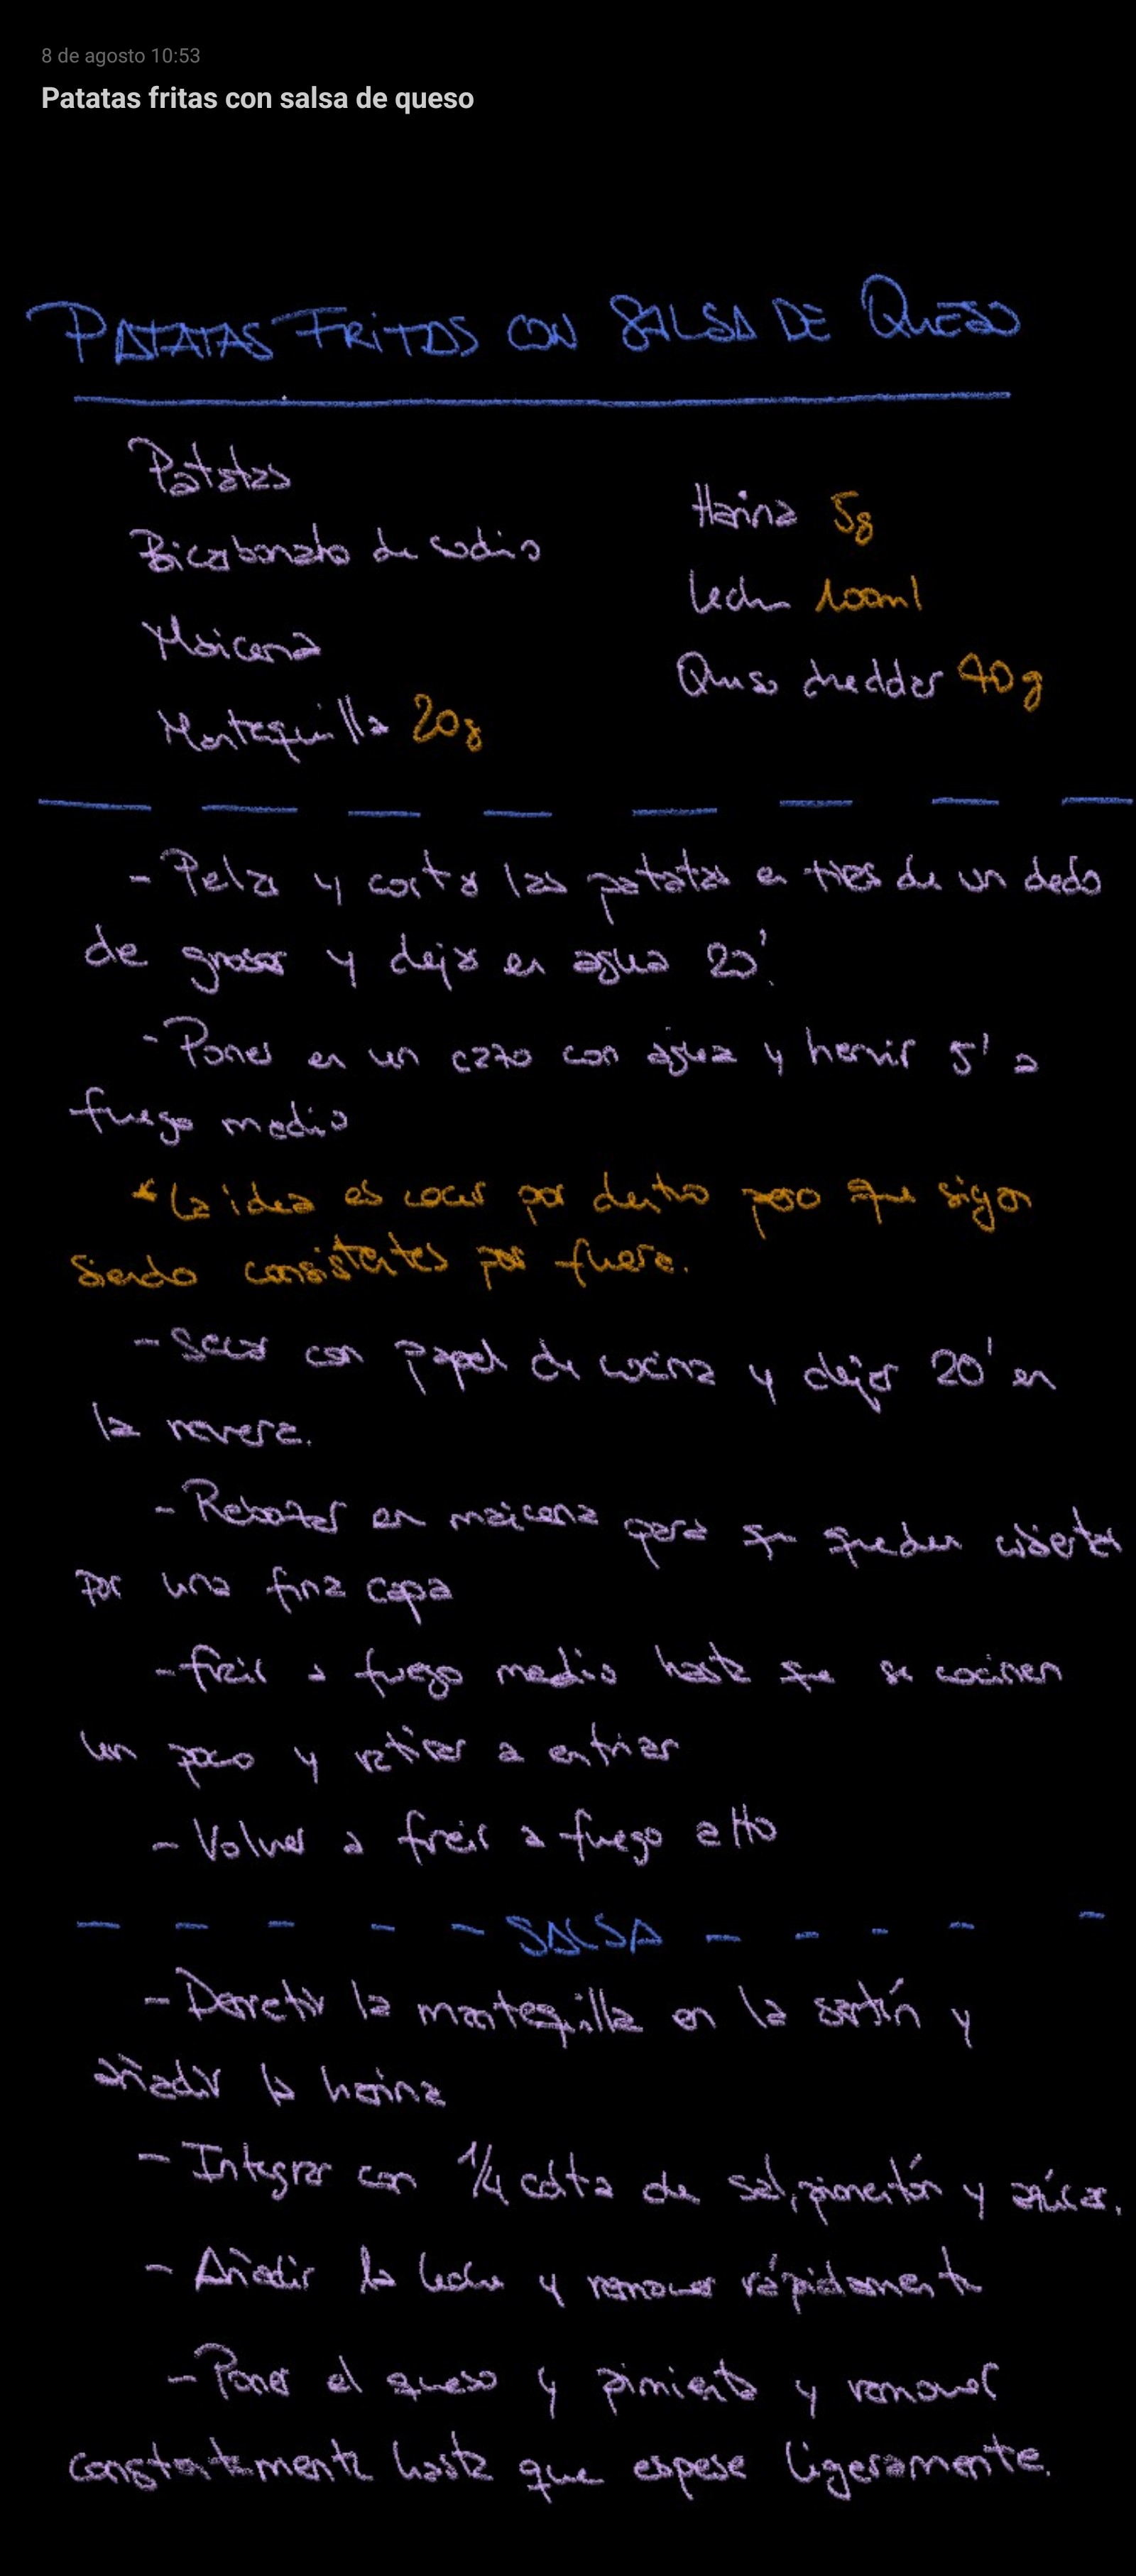 8 de agosto 10:53
Patatas fritas con salsa de queso
PATATAS FRITAS CON SALSA DE QUESO
Patatas
Harina 5g
Bicarbonato de sodio
Leche 100ml
Maicena
Queso cheddar 40g
Mantequilla 20g
- Pelar y cortar las patatas en tiras de un dedo
de grosor y dejar en agua 20'.
- Poner en un cazo con agua y hervir 5' a
fuego medio
* La idea es cocer por dentro pero que sigan
siendo consistentes por fuera.
- Secar con papel de cocina y dejar 20' en
la nevera.
- Rebozar en maicena para que queden cubiertas
por una fina capa
- freír a fuego medio hasta que se cocinen
un poco y retirar a enfriar
- Volver a freír a fuego alto
- - - - - SALSA - - - - -
- Derretir la mantequilla en la sartén y
añadir la harina
- Integrar con 1/4 cdta de sal, pimentón y azúcar.
- Añadir la leche y remover rápidamente
- Poner el queso y pimienta y remover
constantemente hasta que espese ligeramente.